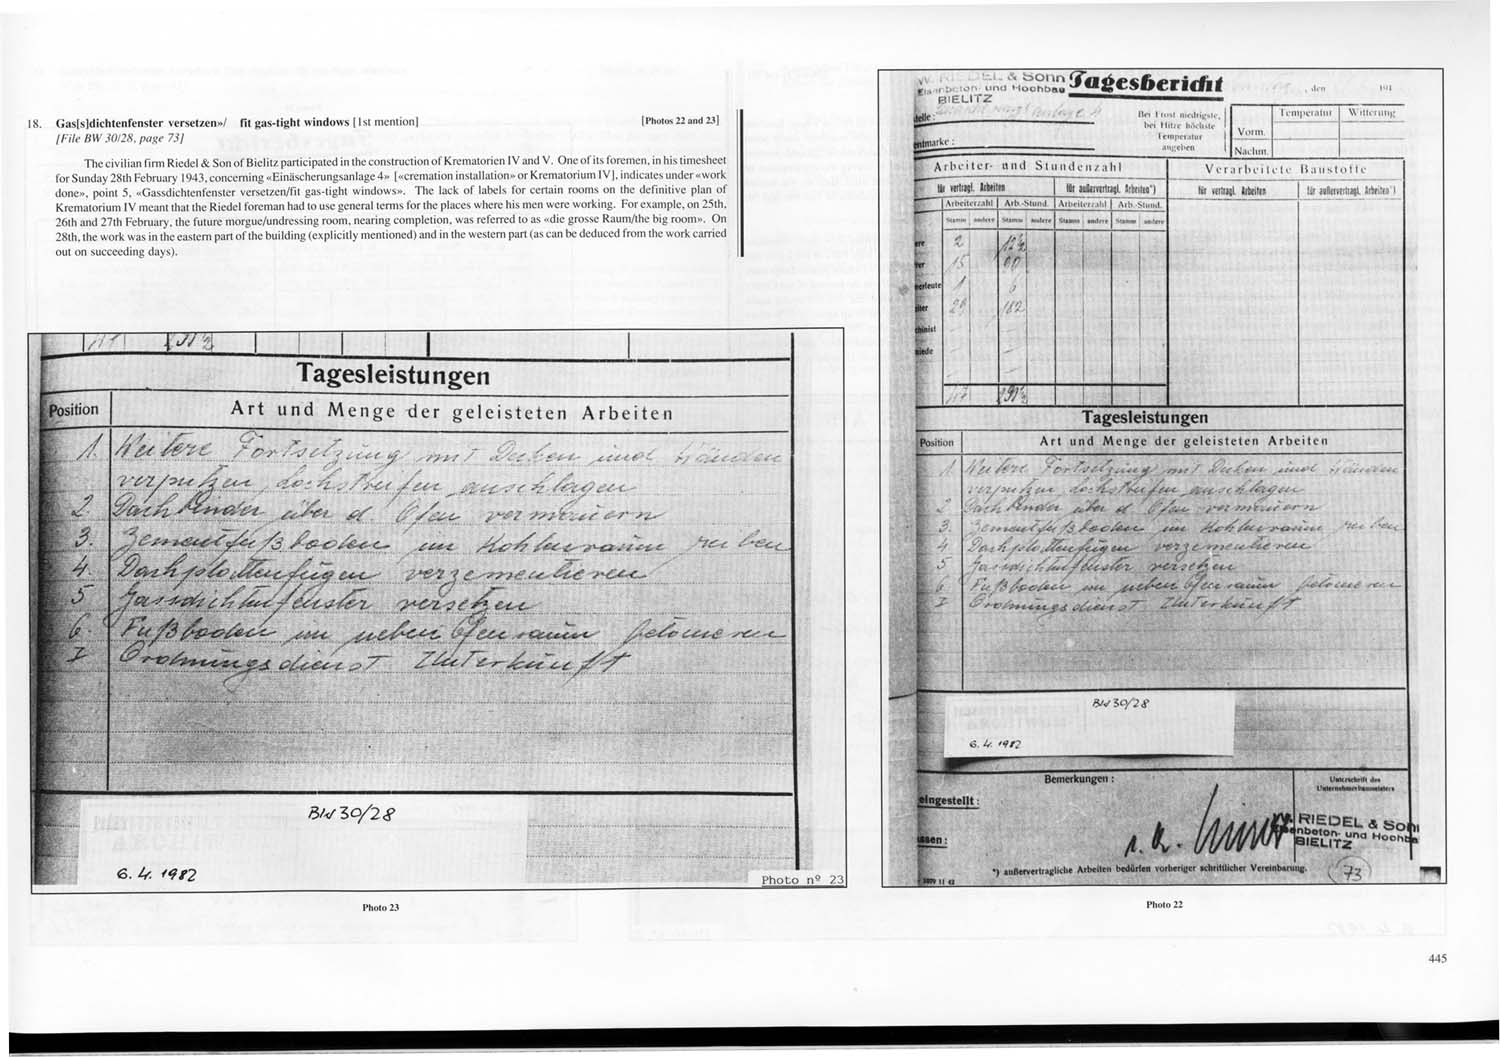 18. Gas[s]dichtenfenster versetzen»/ fit gas-tight windows [1st mention] [Photos 22 and 23]
[File BW 30/28, page 73]
The civilian firm Riedel & Son of Bielitz participated in the construction of Krematorien IV and V. One of its foremen, in his timesheet
for Sunday 28th February 1943, concerning «Einäscherungsanlage 4» [«cremation installation» or Krematorium IV], indicates under «work
done», point 5, «Gassdichtenfenster versetzen/fit gas-tight windows». The lack of labels for certain rooms on the definitive plan of
Krematorium IV meant that the Riedel foreman had to use general terms for the places where his men were working. For example, on 25th,
26th and 27th February, the future morgue/undressing room, nearing completion, was referred to as «die grosse Raum/the big room». On
28th, the work was in the eastern part of the building (explicitly mentioned) and in the western part (as can be deduced from the work carried
out on succeeding days).
Tagesleistungen
Position Art und Menge der geleisteten Arbeiten
1. Weitere Fortsetzung mit Decken und Wänden
verputzen, Lochstreifen anschlagen
2. Dachbinder über d. Ofen vermauern
3. Zementfußboden im Kohlenraum reiben
4. Dachplattenfugen verzementieren
5 Gassdichtenfenster versetzen
6. Fußboden im neben Ofenraum betonieren
7 Ordnungsdienst Unterkunft
BW 30/28
6. 4. 1982
Photo nº 23
Photo 23
W. RIEDEL & Sohn Tagesbericht
Eisenbeton- und Hochbau
BIELITZ
, den 191
stelle:
entmarke :
Bei Frost niedrigste,
bei Hitze höchste
Temperatur
angeben
Temperatur Witterung
Vorm.
Nachm.
Arbeiter- und Stundenzahl Verarbeitete Baustoffe
für vertragl. Arbeiten für außervertragl. Arbeiten*) für vertragl. Arbeiten für außervertragl. Arbeiten*)
Arbeiterzahl Arb.-Stund. Arbeiterzahl Arb.-Stund.
Stamm andere Stamm andere Stamm andere Stamm andere
2 12½
15 90
1 6
29 182
47 290½
Tagesleistungen
Position Art und Menge der geleisteten Arbeiten
1. Weitere Fortsetzung mit Decken und Wänden
verputzen, Lochstreifen anschlagen
2 Dachbinder über d. Ofen vermauern
3. Zementfußboden im Kohlenraum reiben
4 Dachplattenfugen verzementieren
5 Gassdichtenfenster versetzen
6. Fußboden im neben Ofenraum betonieren
7 Ordnungsdienst Unterkunft
BW 30/28
6. 4. 1982
Bemerkungen :
Unterschrift des
Unternehmerbaumeisters
eingestellt :
ssen :
W. RIEDEL & Sohn
Eisenbeton- und Hochba
BIELITZ
*) außervertragliche Arbeiten bedürfen vorheriger schriftlicher Vereinbarung.
73
Photo 22
445